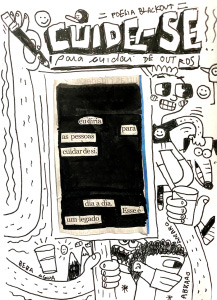 POESIA BLACKOUT
CUIDE-SE
para cuidar DE OUTROS
eu diria
para
as pessoas
cuidar de si.
dia a dia.
Esse é
um legado
BEBA ÁGUA